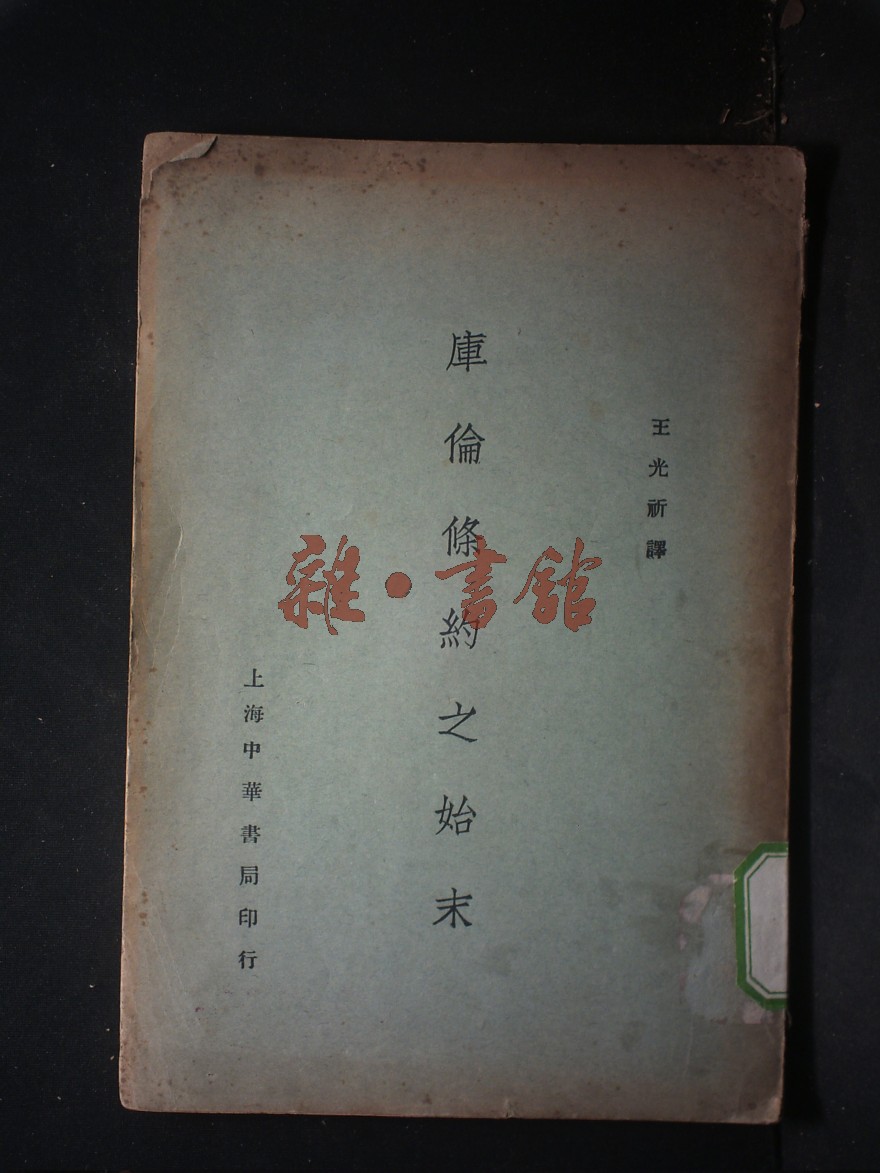 王光祈譯
庫倫條約之始末
上海中華書局印行
雜·書館